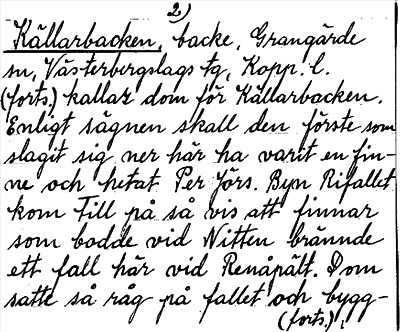 2)
Källarbacken, backe, Grangärde
sn, Västerbergslags tg, Kopp. l.
(forts.) kallar dom för Källarbacken.
Enligt sägnen skall den förste som
slagit sig ner här ha varit en fin-
ne och hetat Per Jörs. Byn Rifallet
kom till på så vis att finnar
som bodde vid Nitten brännde
ett fall här vid Renåpält. Dom
satte så råg på fallet och bygg-
(forts.).